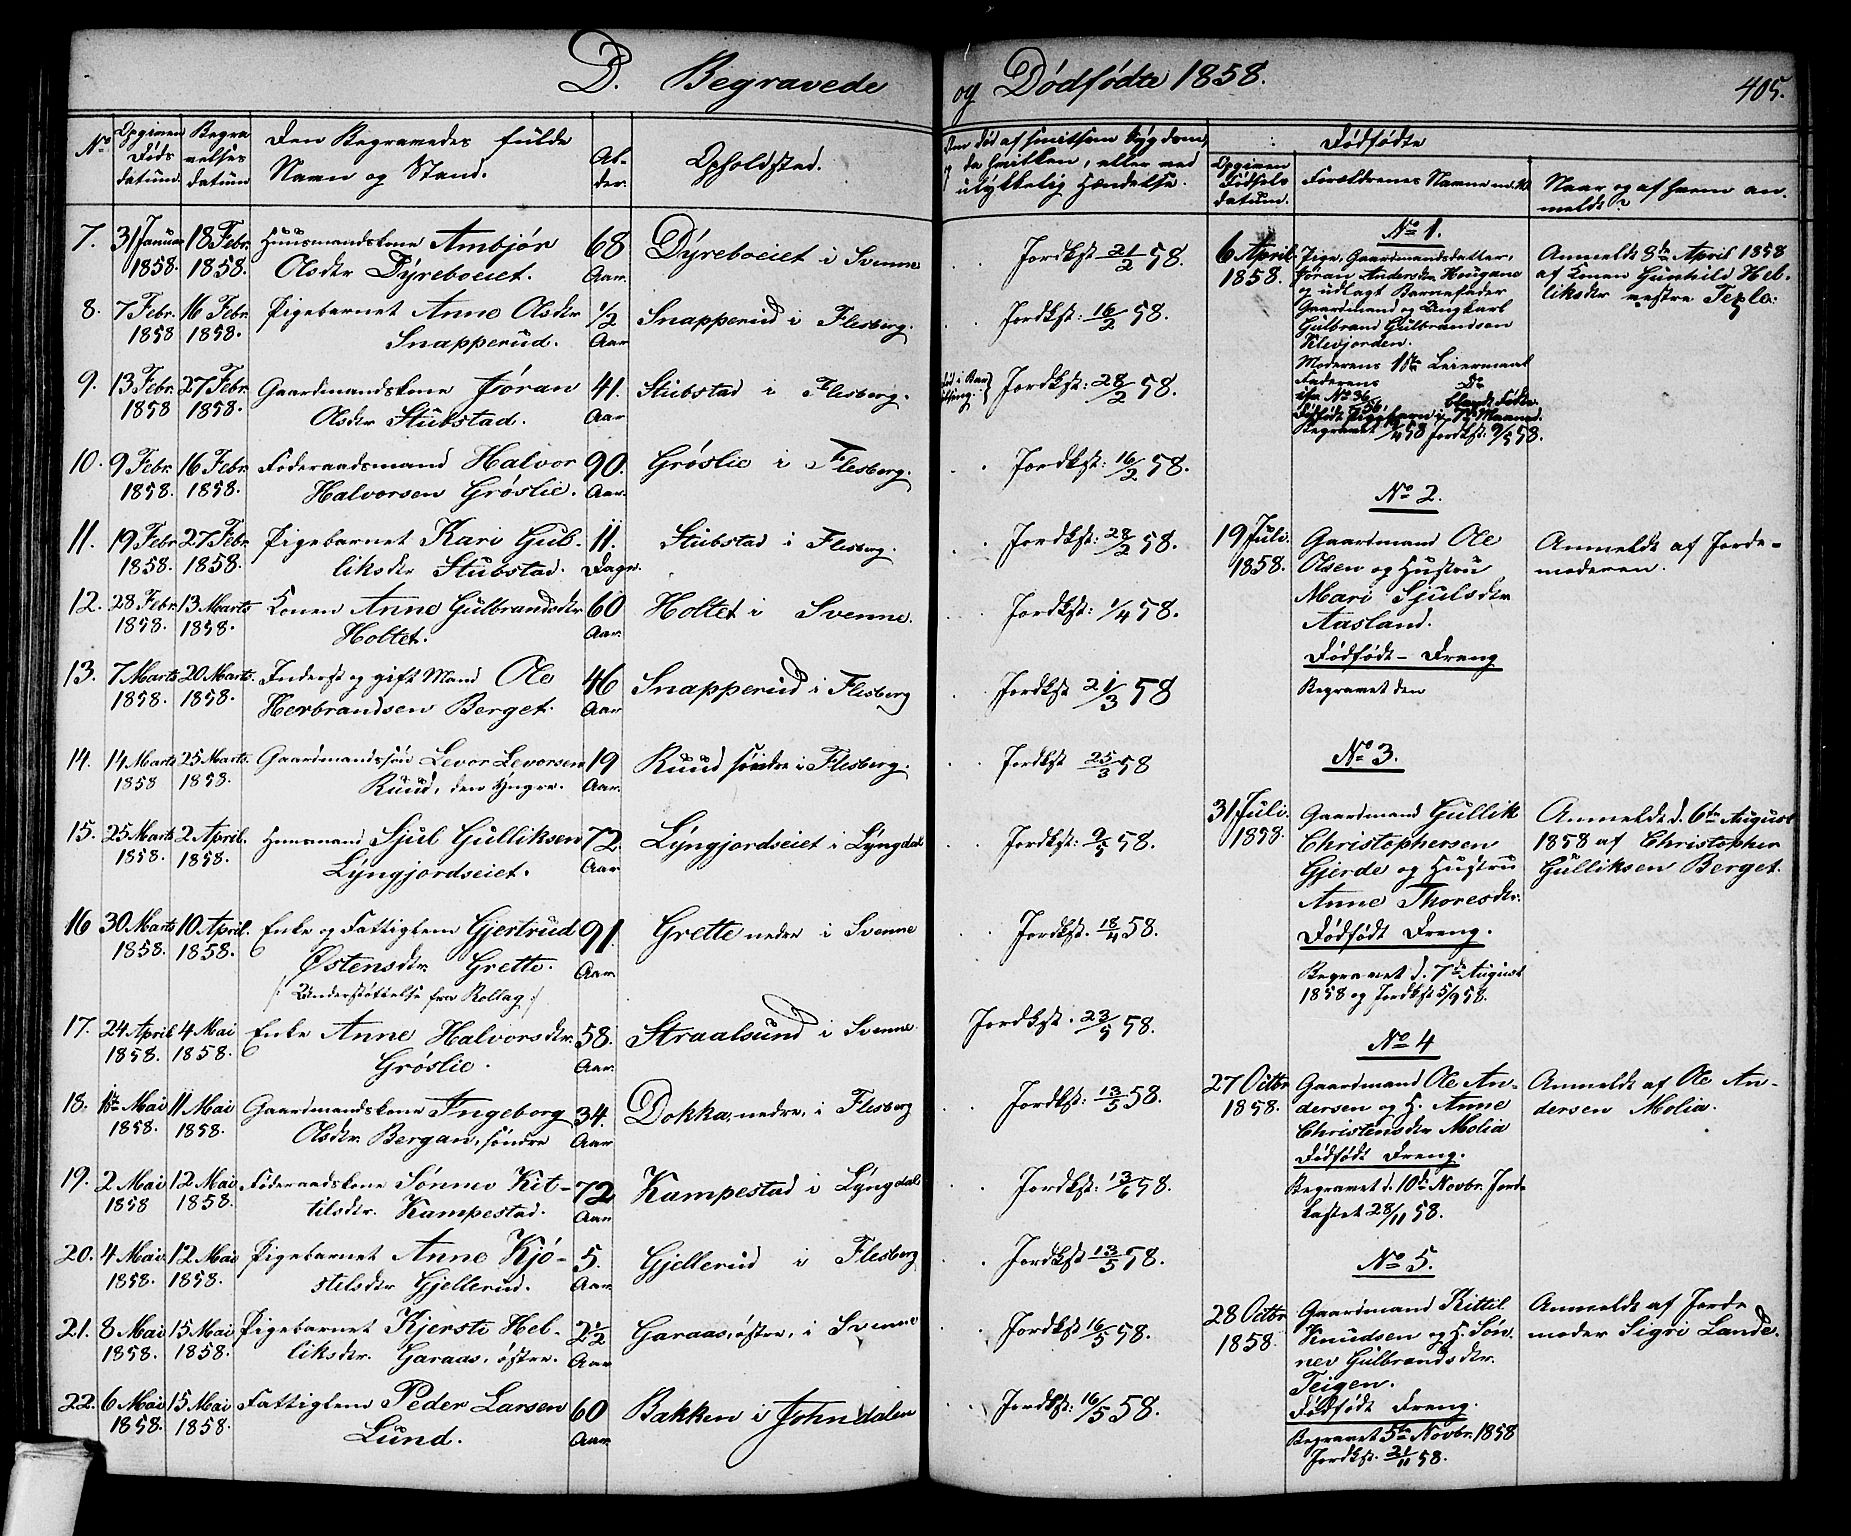 D. Begravede og Dødfødte 1858.
405.
No
Opgiven Døds datum.
Begravelses datum
Den Begravedes fulde Navn og Stand.
Alder.
Opholdsted.
Dødfødte
Opgiven Fødsels datum.
Forældrenes Navne
Naar og af hvem anmeldt?
7. 31 Januar 1858. 18 Febr. 1858. Huusmandskone Ambjør 68 Aar. Dÿreboeiet i Svenne Jordkst: 21/2 58.
Olsdtr Dÿreboeiet.
8. 7 Febr. 1858 16 Febr. 1858. Pigebarnet Anne Olsdtr 1/2 Aar Snapperud i Flesberg. Jordkst: 16/2 58.
Snapperud.
9. 13 Febr. 1858 27 Febr. 1858. Gaardmandskone Jøran 41. Aar Stubstad i Flesberg. Jordkst: 28/2 58.
Olsdtr Stubstad.
10. 9 Febr. 1858. 16 Febr. 1858. Føderaadsmand Halvor 90. Aar. Grøslie i Flesberg. Jordkst: 16/2 58.
Halvorsen Grøslie.
11. 19 Febr. 1858. 27 Febr 1858. Pigebarnet Kari Gul- 11. Dage. Stubstad i Flesberg. Jordkst: 28/2 58.
liksdtr Stubstad.
12. 28 Febr. 1858. 13 Marts 1858. Konen Anne Gulbrandsdtr 60 Aar. Holtet i Svenne. Jordkst: 1/4 58.
Holtet.
13. 7 Marts 1858. 20 Marts. 1858. Inderst og gift Mand Ole 46 Aar Snapperud i Flesberg Jordkst 21/3 58
Herbrandsen Berget.
14. 14 Marts 1858 25 Marts. 1858. Gaardmandssøn Levor Levorsen 19 Aar. Ruud søndre i Flesberg. Jordkst 25/3 58
Ruud, den Yngre.
15. 25 Marts 1858. 2 April. 1858. Huusmand Sjul Gulliksen 72. Aar Lÿngjordseiet i Lÿngdal Jordkst: 9/5 58.
Lÿngjordseiet.
16 30 Marts 1858. 10 April. 1858. Enke og Fattiglem Gjertrud 91. Aar. Grette nedre i Svenne Jordkst. 18/4 58.
Østensdtr. Grette.
/: Understøttelse fra Rollag :/
17. 24 April 1858. 4 Mai 1858. Enke Anne Halvorsdtr. 58. Aar. Straalsund i Svenne Jordkst. 23/5 58.
Grøslie.
18. 1ste Mai 1858. 11 Mai 1858. Gaardmandskone Ingeborg 34. Aar Dokka, nedre, i Flesberg Jordkst: 13/5 58.
Olsdtr. Bergan, søndre
19. 2 Mai 1858 12 Mai 1858. Føderaadskone Sønnev Kit- 72 Aar Kampestad i Lÿngdal Jordkst: 13/6 58.
tilsdtr. Kampestad.
20. 4 Mai 1858. 12 Mai 1858. Pigebarnet Anne Kjø- 5. Aar Gjellerud i Flesberg Jordkst: 13/5 58.
stelsdtr Gjellerud.
21. 8 Mai 1858. 15 Mai 1858. Pigebarnet Kjersti Hel- 2 1/2 Aar Garaas, østre, i Svenne Jordkst: 16/5 58.
liksdtr. Garaas, østre.
22. 6 Mai 1858. 15 Mai 1858. Fattiglem Peder Larsen 60 Aar. Bakken i Johndalen Jordkst: 16/5 58.
Lund.
No 1.
6 April 1858.
Pige, Gaardmandsdatter,
Jøran Andersdtr Hougane
og udlagt Barnefader
Gaardmand og Ungkarl
Gulbrand Gulbrandsen
Klevjorden.
Moderens 1ste Leiermaal
Faderens Do
No 36 blandt Fødte
Begravet 58 Jordkst: 9/5 58.
Anmeldt 8de April 1858
af Konen Gunhild Hel-
liksdtr vestre
No 2.
19 Juli. 1858.
Gaardmand Ole
Olsen og Hustru
Mari Sjulsdtr
Aasland.
Dødfødt - Dreng
Begravet den
Anmeldt af Jorde-
moderen.
No 3.
31 Juli. 1858.
Gaardmand Gullik
Christophersen
Gjerde og Hustru
Anne Thoresdtr.
Dødfødt Dreng.
Begravet d. 7de August
1858 og Jordkst 5/9 58.
Anmeldt d. 6te August
1858 af Christopher
Gulliksen Berget.
No 4
27 Octbr 1858.
Gaardmand Ole An-
dersen og H. Anne
Christensdtr Molia
Dødfødt Dreng.
Begravet d. 10de Novbr. Jord-
kastet 28/11 58.
Anmeldt af Ole An-
dersen Molia.
No 5.
28 Octbr 1858.
Gaardmand Kittil
Knudsen og H. Søn-
nev Gulbrandsdtr.
Teigen.
Dødfødt Dreng.
Begravet 5te Novbr. 1858
Jordkst. 21/11 58.
Anmeldt af Jorde
moder Sigri Lande.